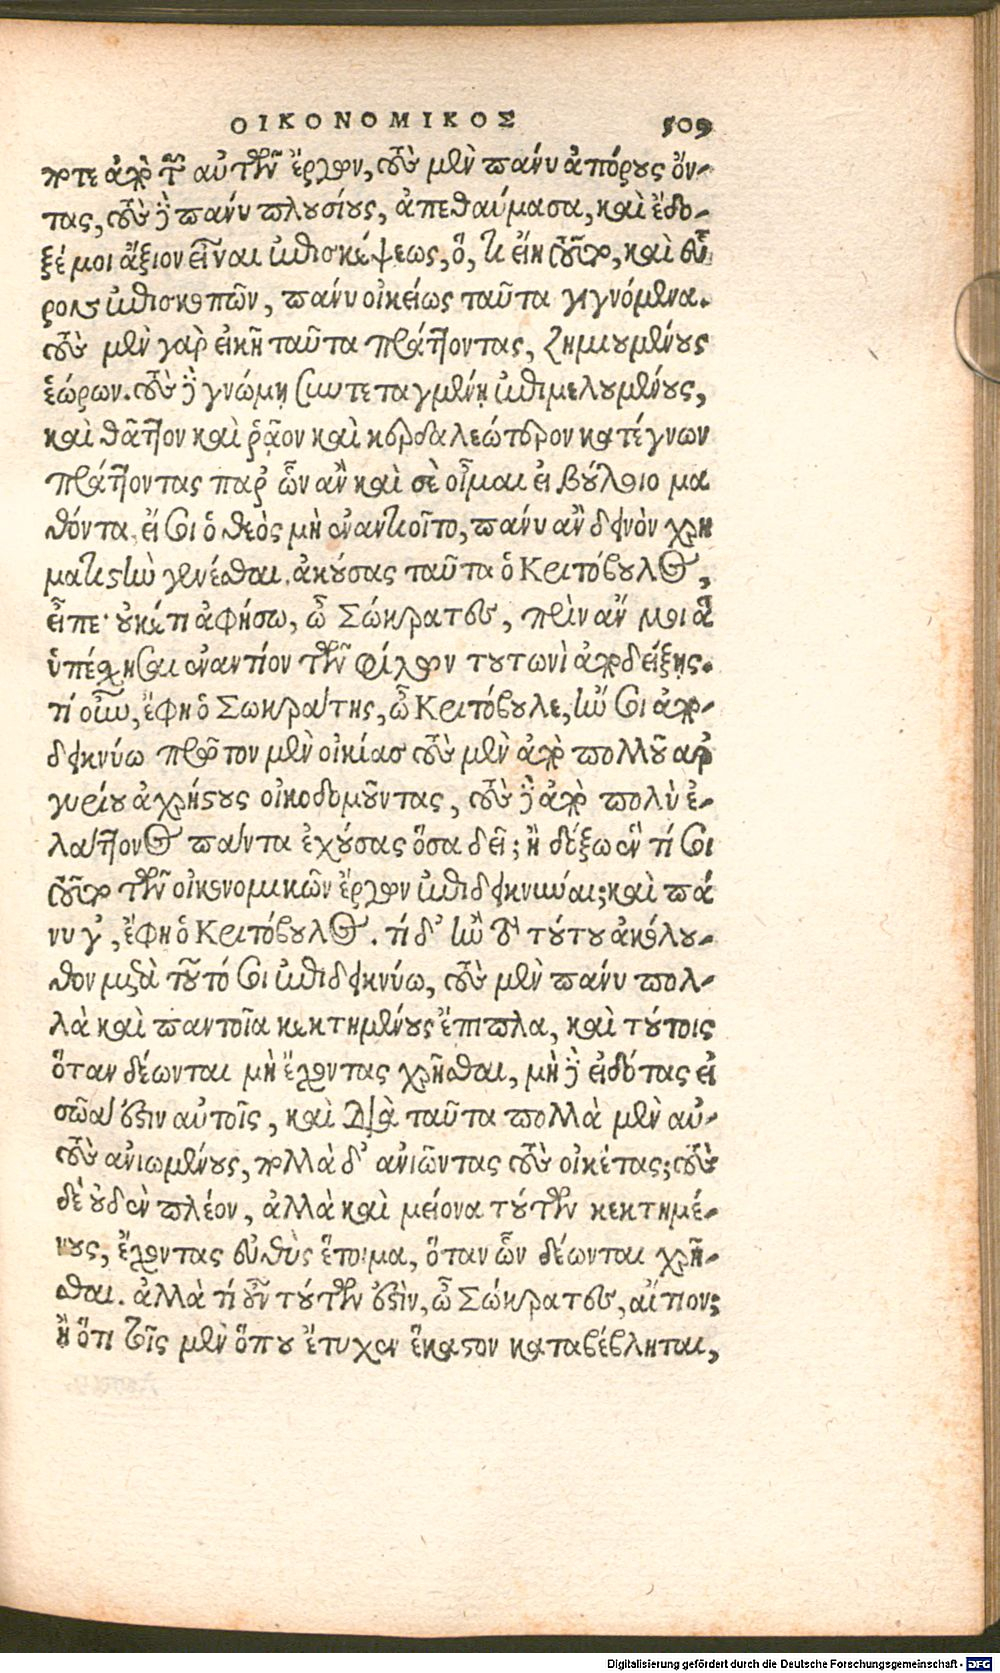 ΟΙΚΟΝΟΜΙΚΟΣ 509
ποτε ἀπὸ τῶν αὐτῶν ἔργων, τοὺς μὲν πάνυ ἀπόρους ὄν-
τας, τοὺς δὲ πάνυ πλουσίους, ἀπεθαύμασα, καὶ ἔδο-
ξέ μοι ἄξιον εἶναι ἐπισκέψεως, ὅ, τι εἴη τοῦτο, καὶ εὗ
ρον ἐπισκοπῶν, πάνυ οἰκείως ταῦτα γιγνόμενα.
τοὺς μὲν γὰρ εἰκῆ ταῦτα πράττοντας, ζημιουμένους
ἑώρων. τοὺς δὲ γνώμῃ συντεταγμένῃ ἐπιμελουμένους,
καὶ θᾶττον καὶ ῥᾷον καὶ κερδαλεώτερον κατέγνων
πράττοντας παρ ὧν ἂν καὶ σὲ οἶμαι εἰ βούλοιο μα
θόντα, εἴ σοι ὁ θεὸς μὴ ἐναντιοῖτο, πάνυ ἂν δεινὸν χρη
ματιστὴν γενέσθαι. ἀκούσας ταῦτα ὁ Κριτόβουλος,
εἶπε· οὐκέτι ἀφήσω, ὦ Σώκρατες, πρὶν ἄν μοι ἃ
ὑπέσχησαι ἐναντίον τῶν φίλων τουτωνὶ ἀποδείξῃς.
τί οὖν, ἔφη ὁ Σωκράτης, ὦ Κριτόβουλε, ἤν σοι ἀπο-
δεικνύω πρῶτον μὲν οἰκίας τοὺς μὲν ἀπὸ πολλοῦ ἀρ
γυρίου ἀχρήστους οἰκοδομοῦντας, τοὺς δὲ ἀπὸ πολὺ ἐ-
λάττονος πάντα ἐχούσας ὅσα δεῖ; ἢ δόξω ἕν τί σοι
τοῦτο τῶν οἰκονομικῶν ἔργων ἐπιδεικνύναι; καὶ πά
νυ γ', ἔφη ὁ Κριτόβουλος. τί δ' ἢν τὸ τούτου ἀκόλου-
θον μετὰ τοῦτό σοι ἐπιδεικνύω, τοὺς μὲν πάνυ πολ-
λὰ καὶ παντοῖα κεκτημένους ἔπιπλα, καὶ τούτοις
ὅταν δέωνται μὴ ἔχοντας χρῆσθαι, μὴ δὲ εἰδότας εἰ
σῶά ἐστιν αὐτοῖς, καὶ διὰ ταῦτα πολλὰ μὲν αὐ-
τοὺς ἀνιωμένους, πολλὰ δ' ἀνιῶντας τοὺς οἰκέτας; τοὺς
δὲ οὐδὲν πλέον, ἀλλὰ καὶ μείονα τούτων κεκτημέ-
νους, ἔχοντας εὐθὺς ἕτοιμα, ὅταν ὧν δέωνται χρῆ-
σθαι. ἀλλὰ τί οὖν τούτων ἐστὶν, ὦ Σώκρατες, αἴτιον;
ἢ ὅτι τοῖς μὲν ὅπου ἔτυχεν ἕκαστον καταβέβληται,
Digitalisierung gefördert durch die Deutsche Forschungsgemeinschaft - DFG